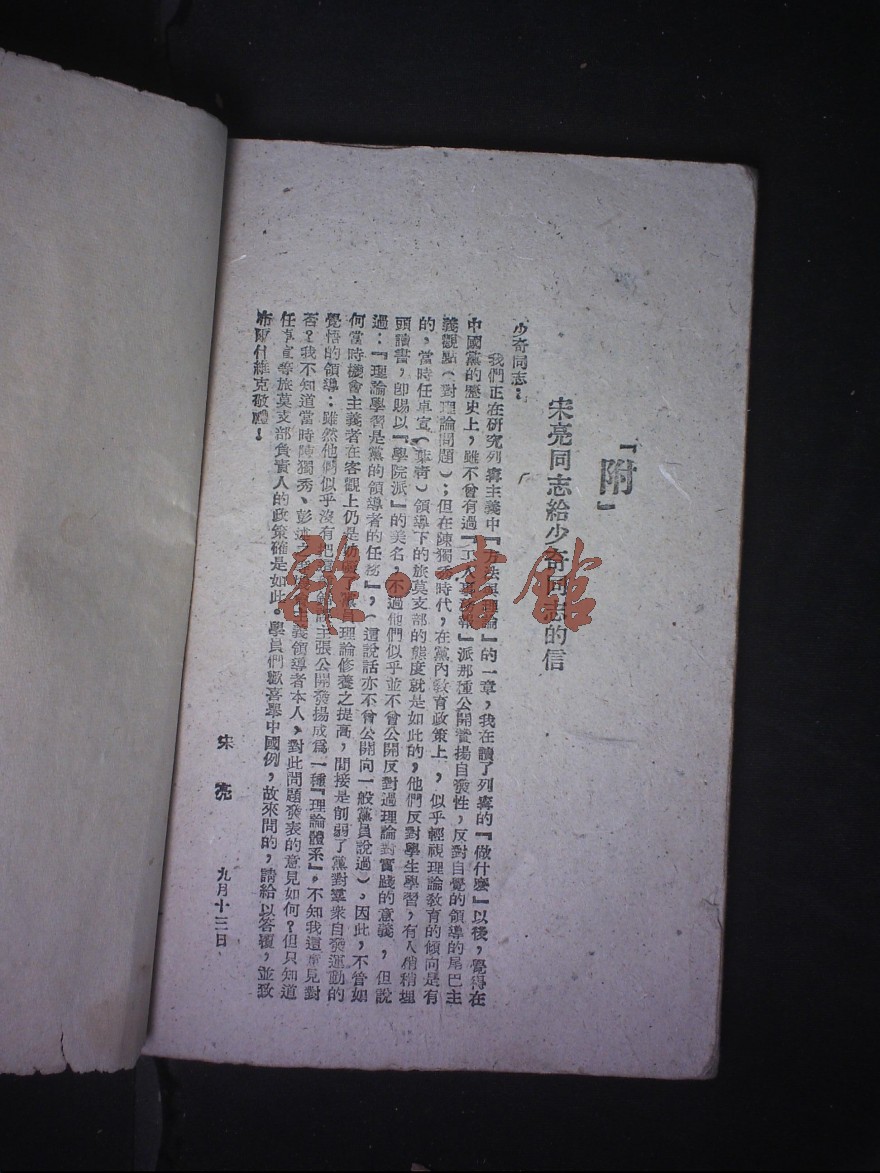 「附」
宋亮同志給少奇同志的信
少奇同志：
我們正在研究列寧主義中『方法與理論』的一章，我在讀了列寧的『做什麽』以後，覺得在
中國黨的歷史上，雖不曾有過『工人事務報』派那種公開讚揚自發性，反對自覺的領導的尾巴主
義觀點（對理論問題）；但在陳獨秀時代，在黨內教育政策上，似乎輕視理論教育的傾向是有
的，當時任卓宣（葉靑）領導下的旅莫支部的態度就是如此的，他們反對學生學習，有人稍稍埋
頭讀書，卽賜以『學院派』的美名，不過他們似乎並不曾公開反對過理論對實踐的意義，但說
過：『理論學習是黨的領導者的任務』，（這說話亦不曾公開向一般黨員說過）。因此，不管如
何當時機會主義者在客觀上仍是妨礙了黨員理論修養之提高，間接是削弱了黨對羣衆自發運動的
覺悟的領導：雖然他們似乎沒有把這種主張公開發揚成爲一種『理論體系』。不知我這意見對
否？我不知道當時陳獨秀、彭述之等機會主義領導者本人，對此問題發表的意見如何？但只知道
任卓宣等旅莫支部負責人的政策確是如此。學員們歡喜舉中國例，故來問的，請給以答覆，並致
布爾什維克敬禮！
宋亮 九月十三日
雜·書館